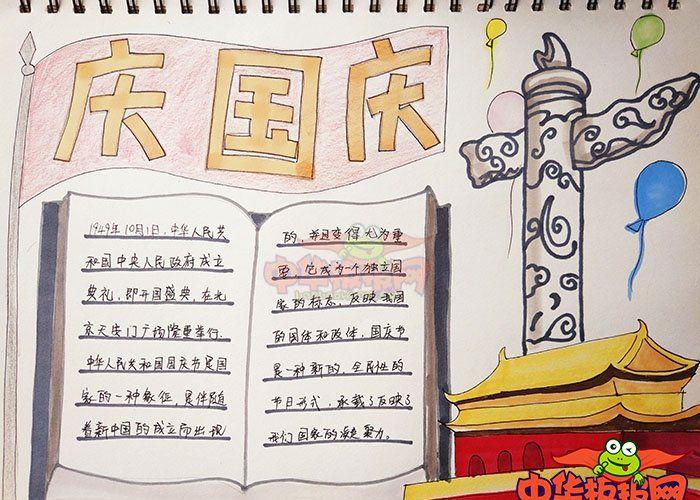 庆国庆
1949年10月1日,中华人民共
和国中央人民政府成立
典礼,即开国盛典,在北
京天安门广场隆重举行.
中华人民共和国国庆节是国
家的一种象征,是伴随
着新中国的成立而出现
的,并且变得尤为重
要,它成为一个独立国
家的标志,反映我国
的国体和政体,国庆节
是一种新的、全民性的
节日形式,承载了反映了
我们国家的凝聚力。
中华板报网
中华板报网